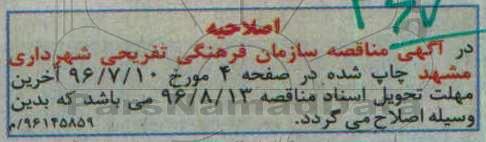 ۳۶۷
اصلاحیه
در آگهی مناقصه سازمان فرهنگی تفریحی شهرداری
مشهد چاپ شده در صفحه ۴ مورخ ۹۶/۷/۱۰ آخرین
مهلت تحویل اسناد مناقصه ۹۶/۸/۱۳ می باشد که بدین
وسیله اصلاح می گردد.
۹۶۱۴۵۸۵۹/م
ParsNamadData